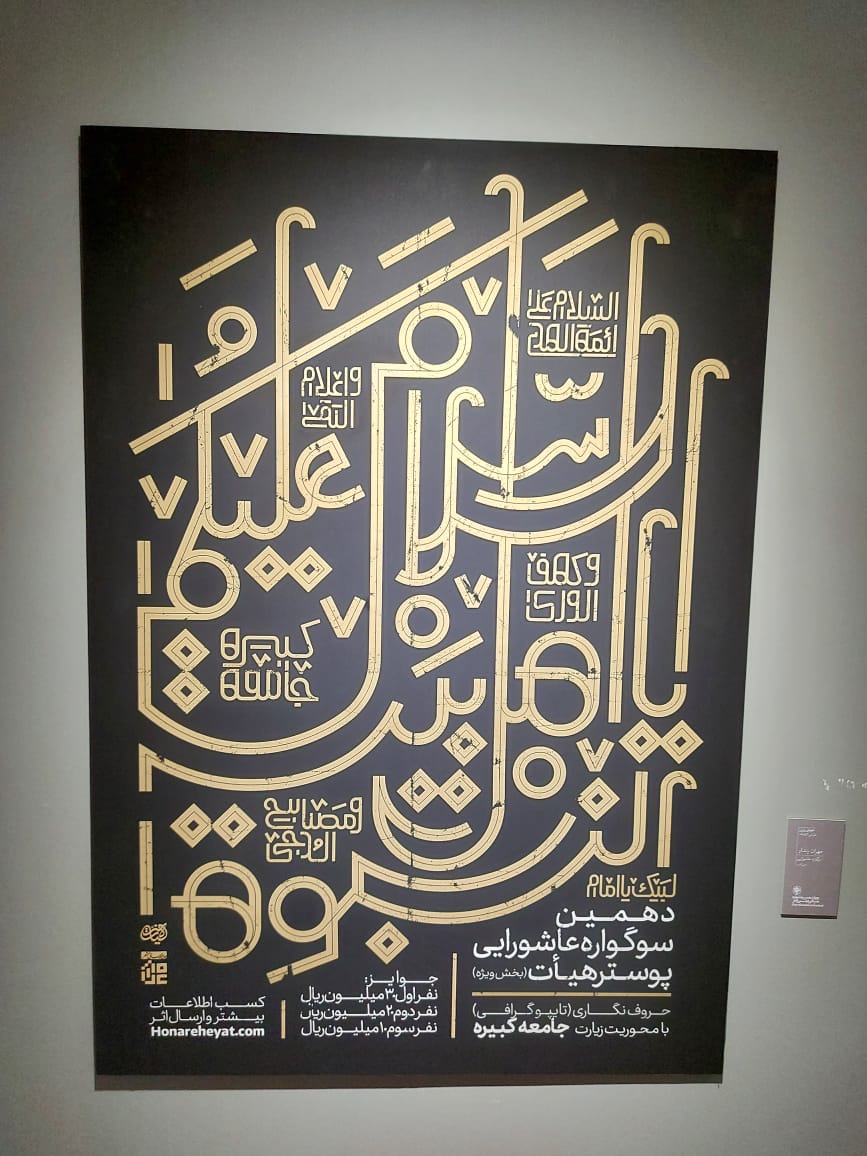 السلام علیکم
یا اهل بیت
النبوة
السلام علی
ائمة الهدی
و اعلام
التقی
و کهف
الوری
کبیره
جامعه
و مصابیح
الدجی
لبیک یا امام
دهمین
سوگواره عاشورایی
پوستر هیأت (بخش ویژه)
حروف نگاری (تایپوگرافی)
با محوریت زیارت جامعه کبیره
جوایز:
نفر اول ۳۰ میلیون ریال
نفر دوم ۲۰ میلیون ریال
نفر سوم ۱۰ میلیون ریال
کسب اطلاعات
بیشتر و ارسال اثر
Honareheyat.com